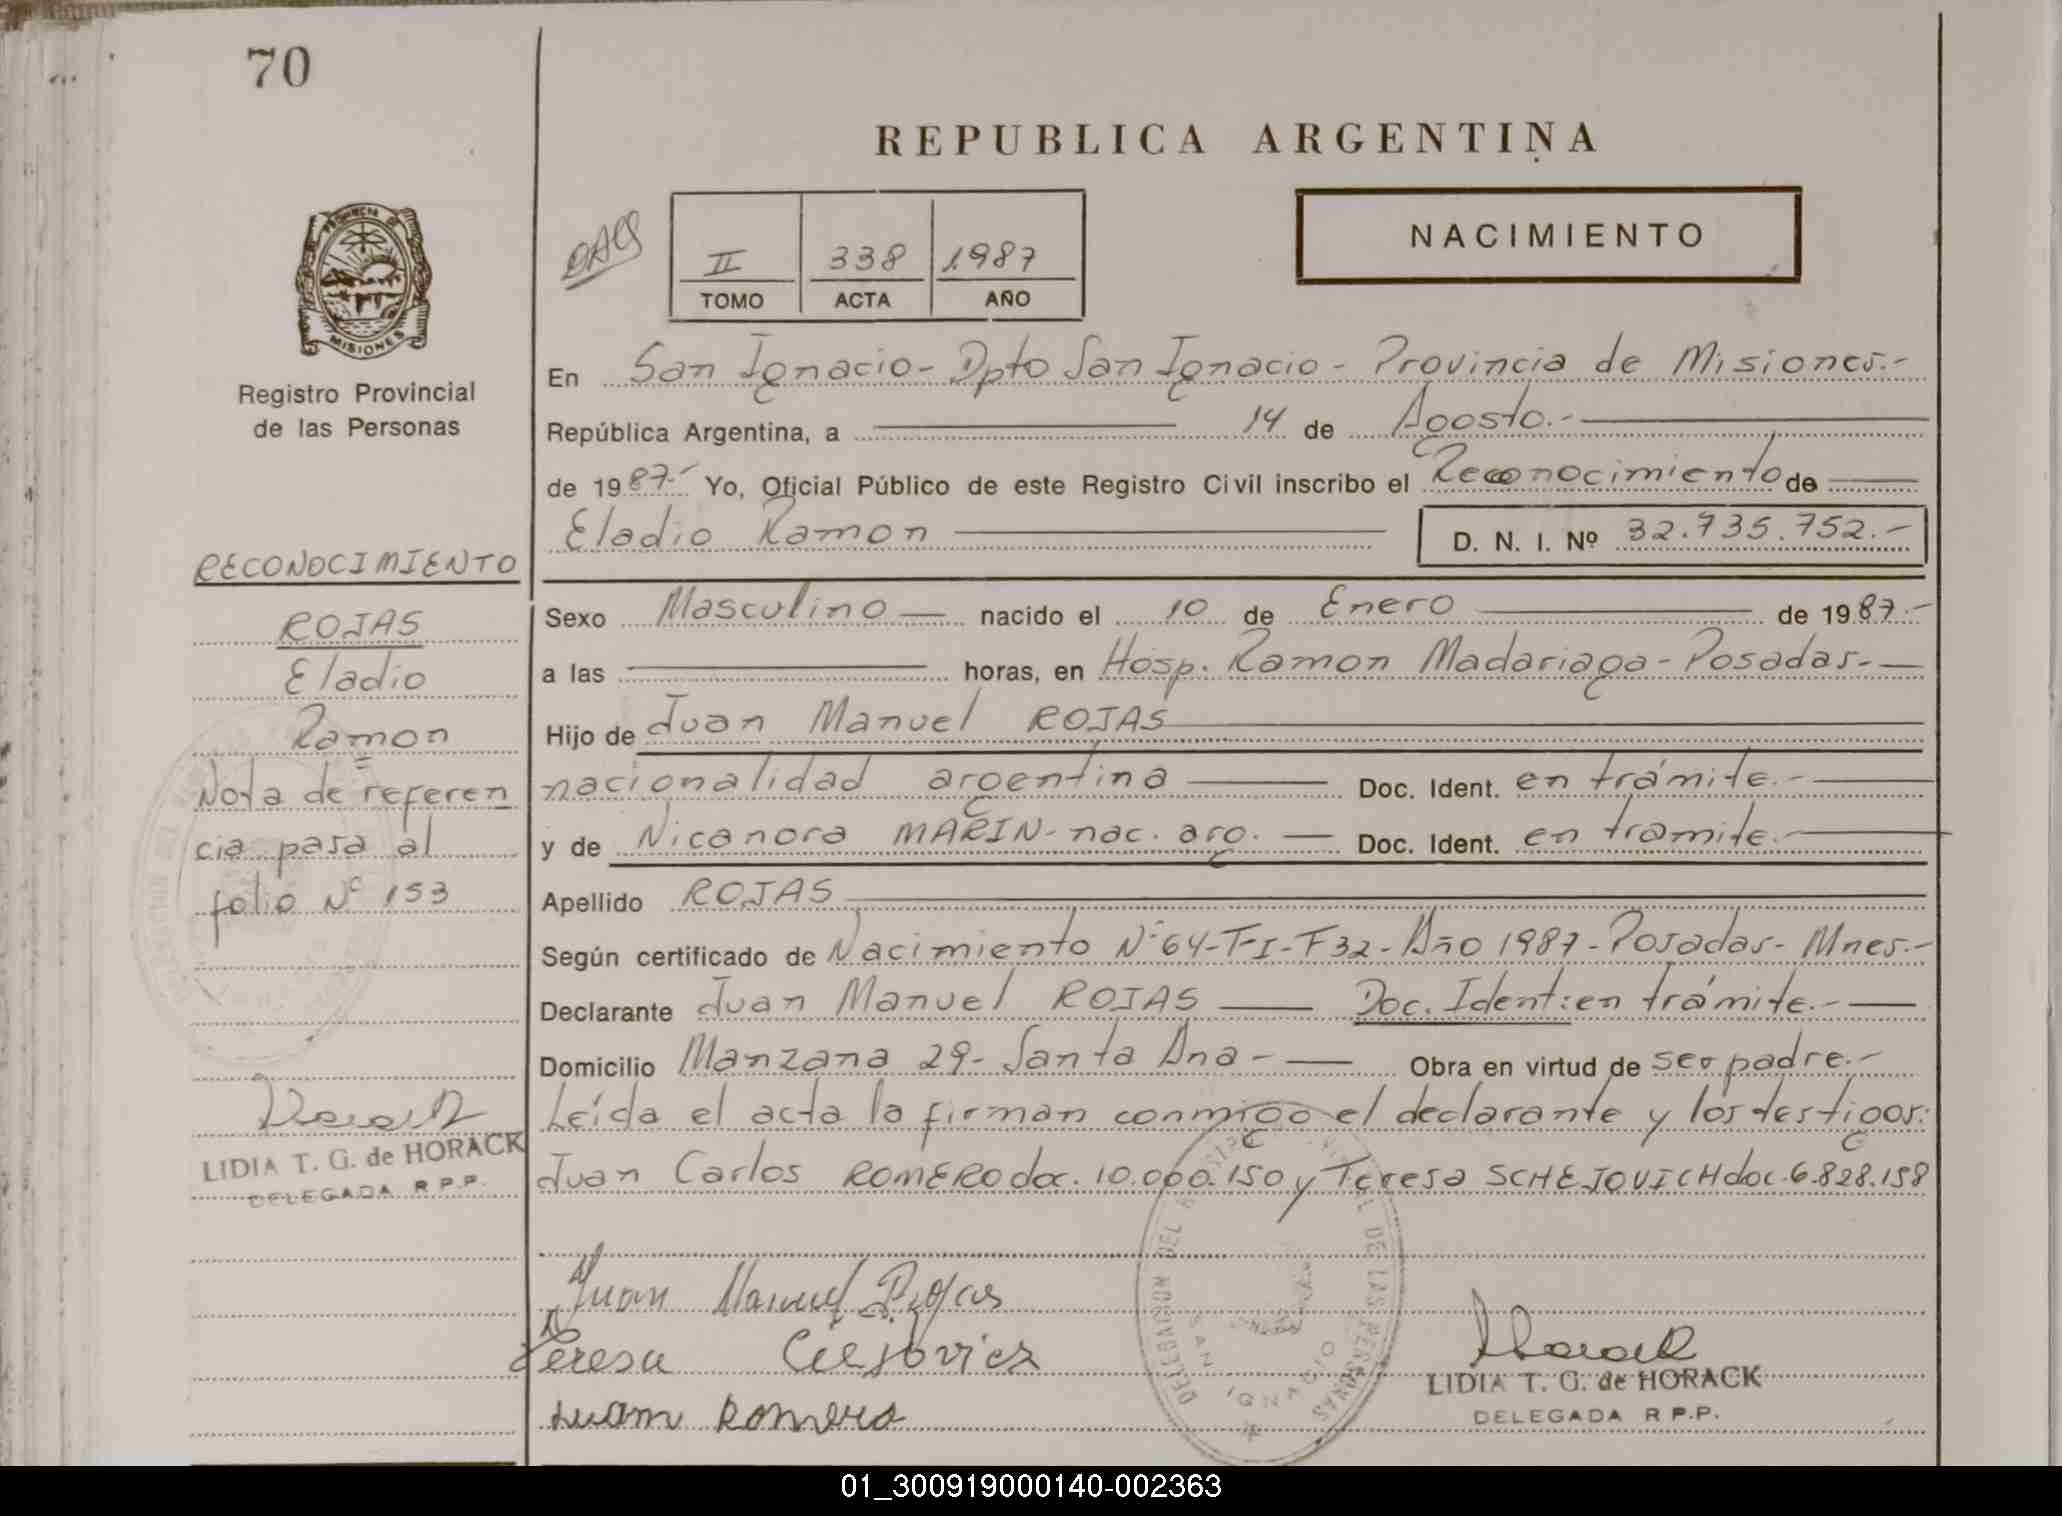 70
REPUBLICA ARGENTINA
II 338 1.987
TOMO ACTA AÑO
NACIMIENTO
PROVINCIA DE
MISIONES
Registro Provincial
de las Personas
En San Ignacio- Dpto San Ignacio- Provincia de Misiones.-
República Argentina, a 14 de Agosto.-
de 1987- Yo, Oficial Público de este Registro Civil inscribo el Reconocimiento de
Eladio Ramon D. N. I. Nº 32.735.752.-
Sexo Masculino nacido el 10 de Enero de 1987.-
a las horas, en Hosp. Ramon Madariaga- Posadas.-
Hijo de Juan Manuel ROJAS
nacionalidad argentina Doc. Ident. en trámite.-
y de Nicanora MARIN- nac. arg. Doc. Ident. en tramite.-
Apellido ROJAS
Según certificado de Nacimiento Nº64-T-I-F32-Año 1987-Posadas- Mnes.-
Declarante Juan Manuel ROJAS Doc. Ident: en trámite.-
Domicilio Manzana 29- Santa Ana- Obra en virtud de ser padre.-
Leída el acta la firman conmigo el declarante y los testigos:
Juan Carlos ROMERO doc. 10.000.150 y Teresa SCHEJOVICH doc. 6.828.158
Juan Manuel Rojas
Teresa
Juan Romero
LIDIA T. G. de HORACK
DELEGADA R P.P.
DELEGAISON DEL REGISTRO PROVINCIAL DE LAS PERSONAS
SAN IGNACIO
RECONOCIMIENTO
ROJAS
Eladio
Ramon
Nota de referen
cia pasa al
folio Nº 153
LIDIA T. G. de HORACK
DELEGADA R P.P.
01_300919000140-002363